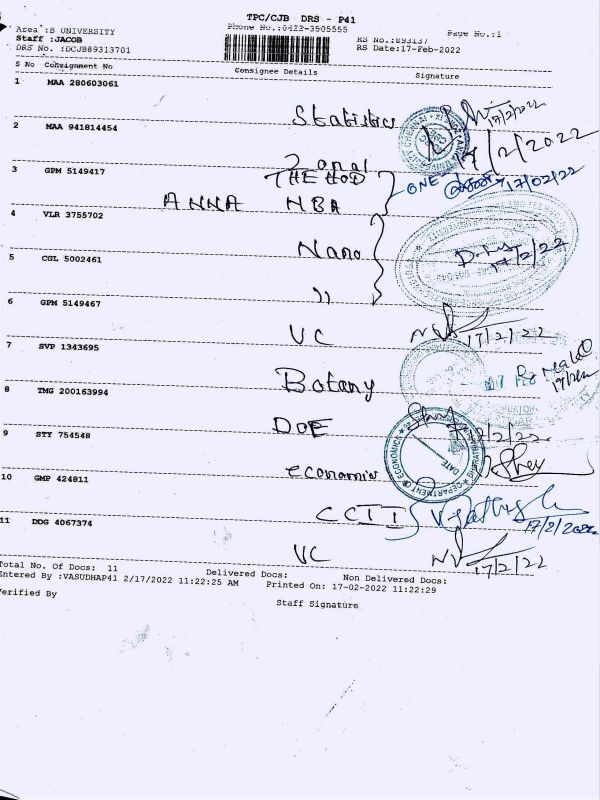 TPC/CJB DRS - P41
Phone No.:0422-3505555
Area :B UNIVERSITY
Staff :JACOB
DRS No. :DCJB89313701
Page No.:1
RS No.:893137
RS Date:17-Feb-2022
S No Consignment No Consignee Details Signature
1 MAA 280603061 Statistics 17/2/2022
2 MAA 941814454 17/2/2022
3 GPM 5149417 THE HOD ONE 17/02/22
ANNA NBA
4 VLR 3755702 Nano 17/2/22
5 CGL 5002461 "
6 GPM 5149467 VC 17/2/22
7 SVP 1343695 Botany
8 TMG 200163994 DOE 17/2/22
9 STY 754548 economics
DEPARTMENT OF ECONOMICS
DATE
10 GMP 424811 CCII 17/2/2022
11 DDG 4067374 VC 17/2/22
Total No. Of Docs: 11 Delivered Docs: Non Delivered Docs:
Entered By :VASUDHAP41 2/17/2022 11:22:25 AM Printed On: 17-02-2022 11:22:29
Verified By Staff Signature